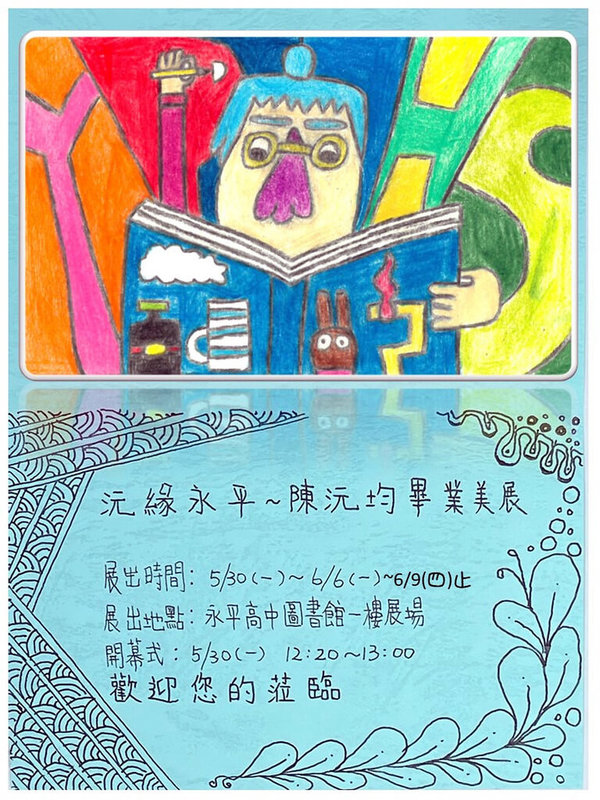 沅緣永平~陳沅均畢業美展
展出時間：5/30(一)~6/6(一)~6/9(四)止
展出地點：永平高中圖書館一樓展場
開幕式：5/30(一) 12:20~13:00
歡迎您的蒞臨